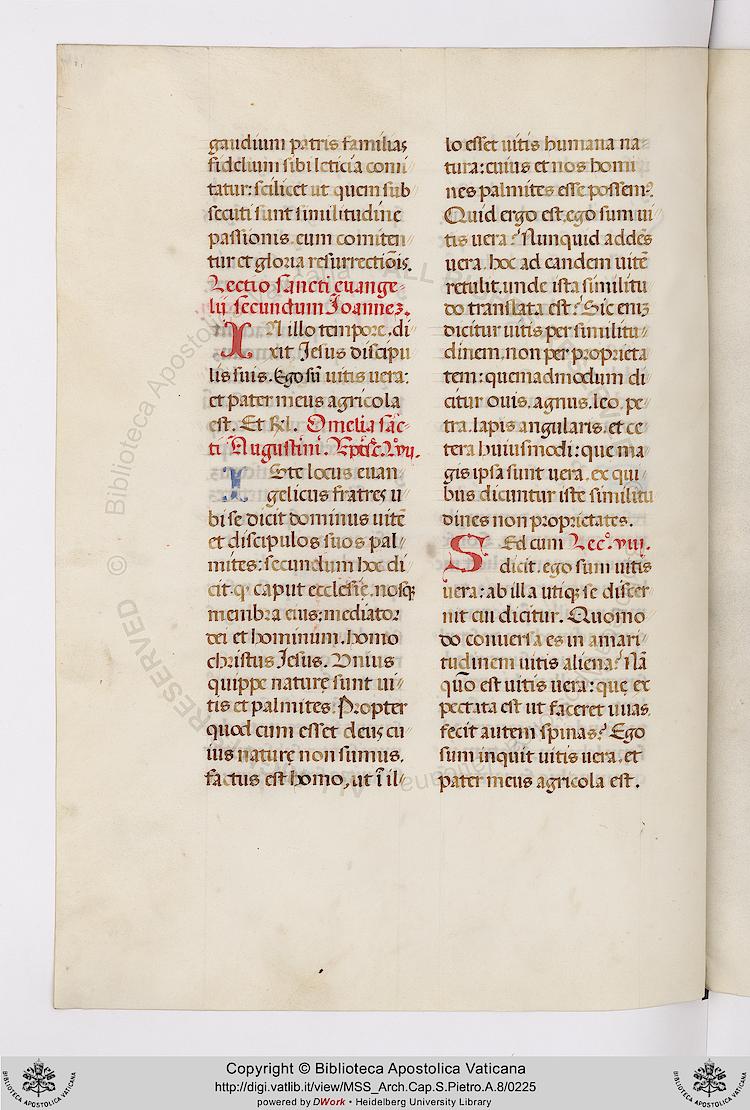 gaudium patris familias
fidelium sibi leticia comi
tatur: scilicet ut quem sub
secuti sunt similitudine
passionis. eum comiten
tur et gloria resurrectiõis.
Lectio sancti euange-
lij secundum Joannez.
IN illo tempore. di
xit Jesus discipu
lis suis. Ego sũ uitis uera:
et pater meus agricola
est. Et Rel. Omelia sãc-
ti Augustini.
ISte locus euan
gelicus fratres u
bi se dicit dominus uitẽ
et discipulos suos pal-
mites: secundum hoc di
cit. q. caput ecclesię. nosq;
membra eius: mediator
dei et hominum. homo
christus Jesus. Vnius
quippe naturę sunt ui
tis et palmites. Propter
quod cum esset deus cu
ius naturę non sumus.
factus est homo, ut ĩ il
lo esset uitis humana na
tura: cuius et nos homi
nes palmites esse possem?
Quid ergo est. ego sum ui
tis uera? Nunquid addẽs
uera. hoc ad eandem uitẽ
retulit. unde ista similitu
do translata est? Sic eniz
dicitur uitis per similitu
dinem. non per proprieta
tem: quemadmodum di
citur ouis. agnus. leo. pe
tra. lapis angularis. et ce
tera huiusmodi: que ma
gis ipsa sunt uera. ex qui
bus dicuntur iste similitu
dines non proprietates.
SEd cum Lecº. viij.
dicit. ego sum uitis
uera: ab illa utiq; se discer
nit cui dicitur. Quomo
do conuersa es in amari
tudinem uitis aliena? Nã
quõ est uitis uera: quę ex
pectata est ut faceret uuas.
fecit autem spinas? Ego
sum inquit uitis uera. et
pater meus agricola est.
© Biblioteca Apostolica Vaticana
ALL RIGHTS RESERVED
Copyright © Biblioteca Apostolica Vaticana
http://digi.vatlib.it/view/MSS_Arch.Cap.S.Pietro.A.8/0225
powered by DWork • Heidelberg University Library
BIBLIOTECA APOSTOLICA VATICANA
BIBLIOTECA APOSTOLICA VATICANA